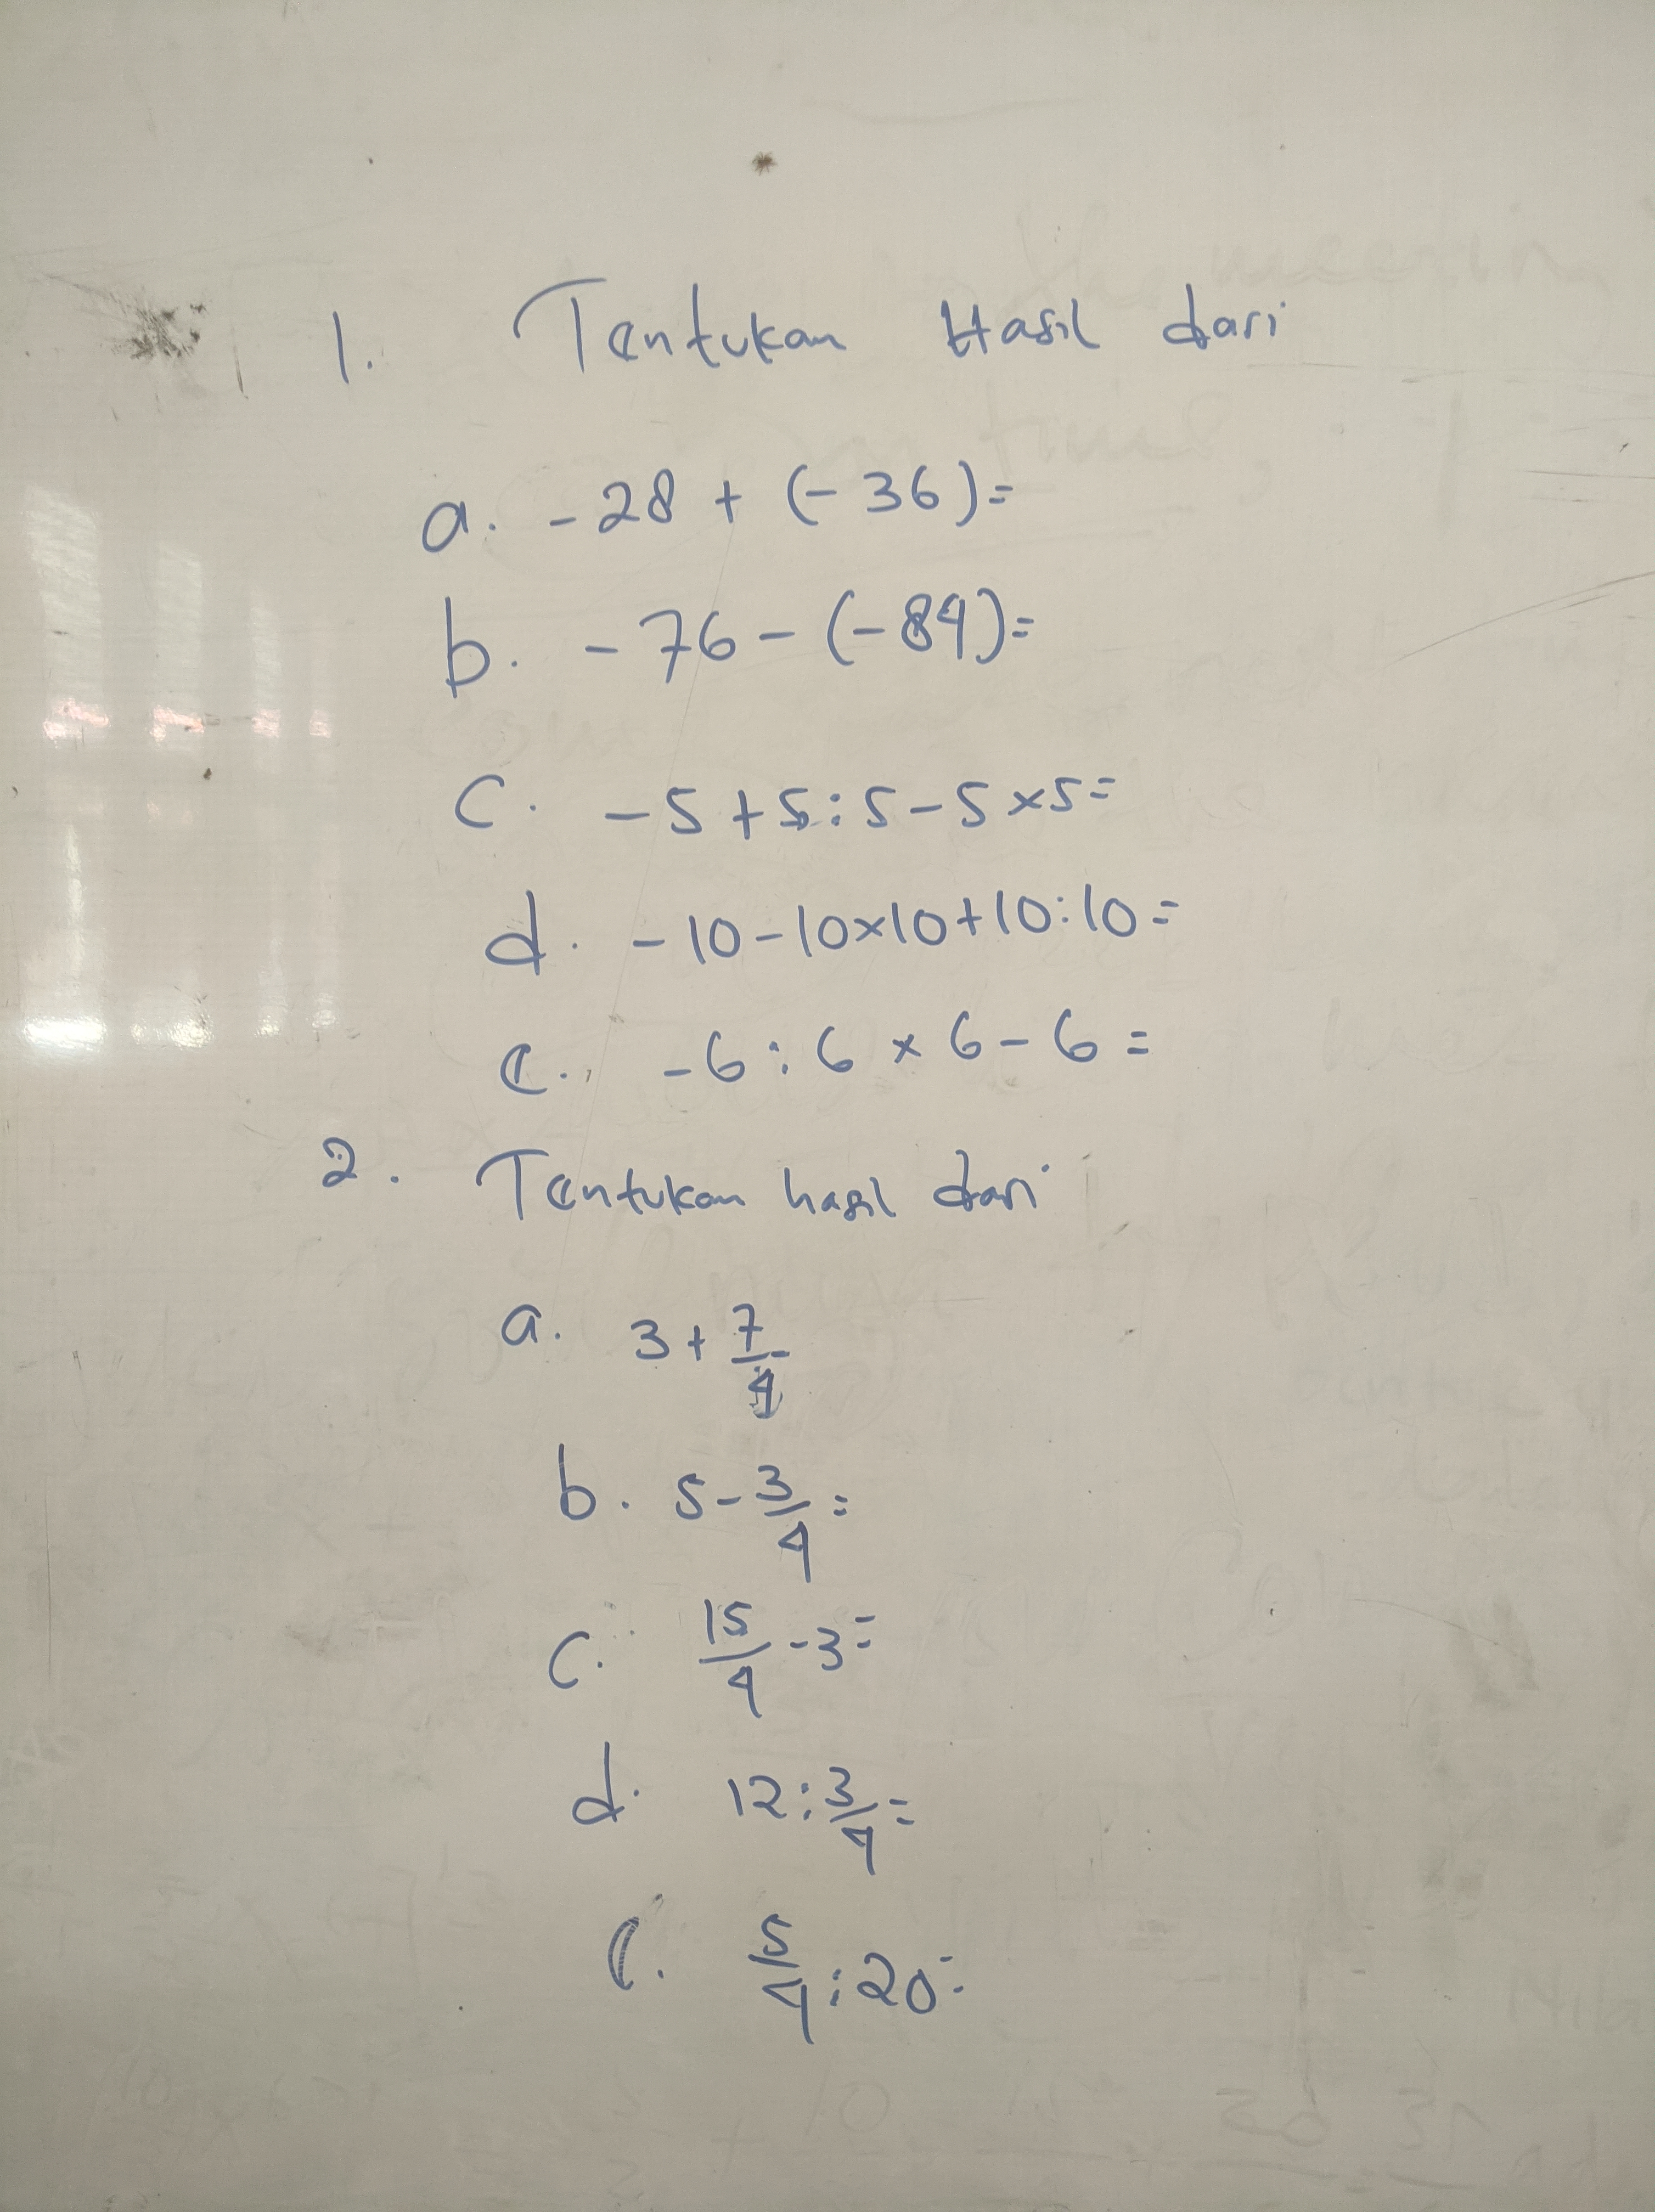 1. Tentukan Hasil dari
a. -28 + (-36)=
b. -76 - (-84)=
c. -5 + 5 : 5 - 5 x 5 =
d. -10 - 10 x 10 + 10 : 10 =
e. -6 : 6 x 6 - 6 =
2. Tentukan hasil dari
a. 3 + 7/4
b. 5 - 3/4 =
c. 15/4 - 3 =
d. 12 : 3/4 =
e. 5/4 : 20 =